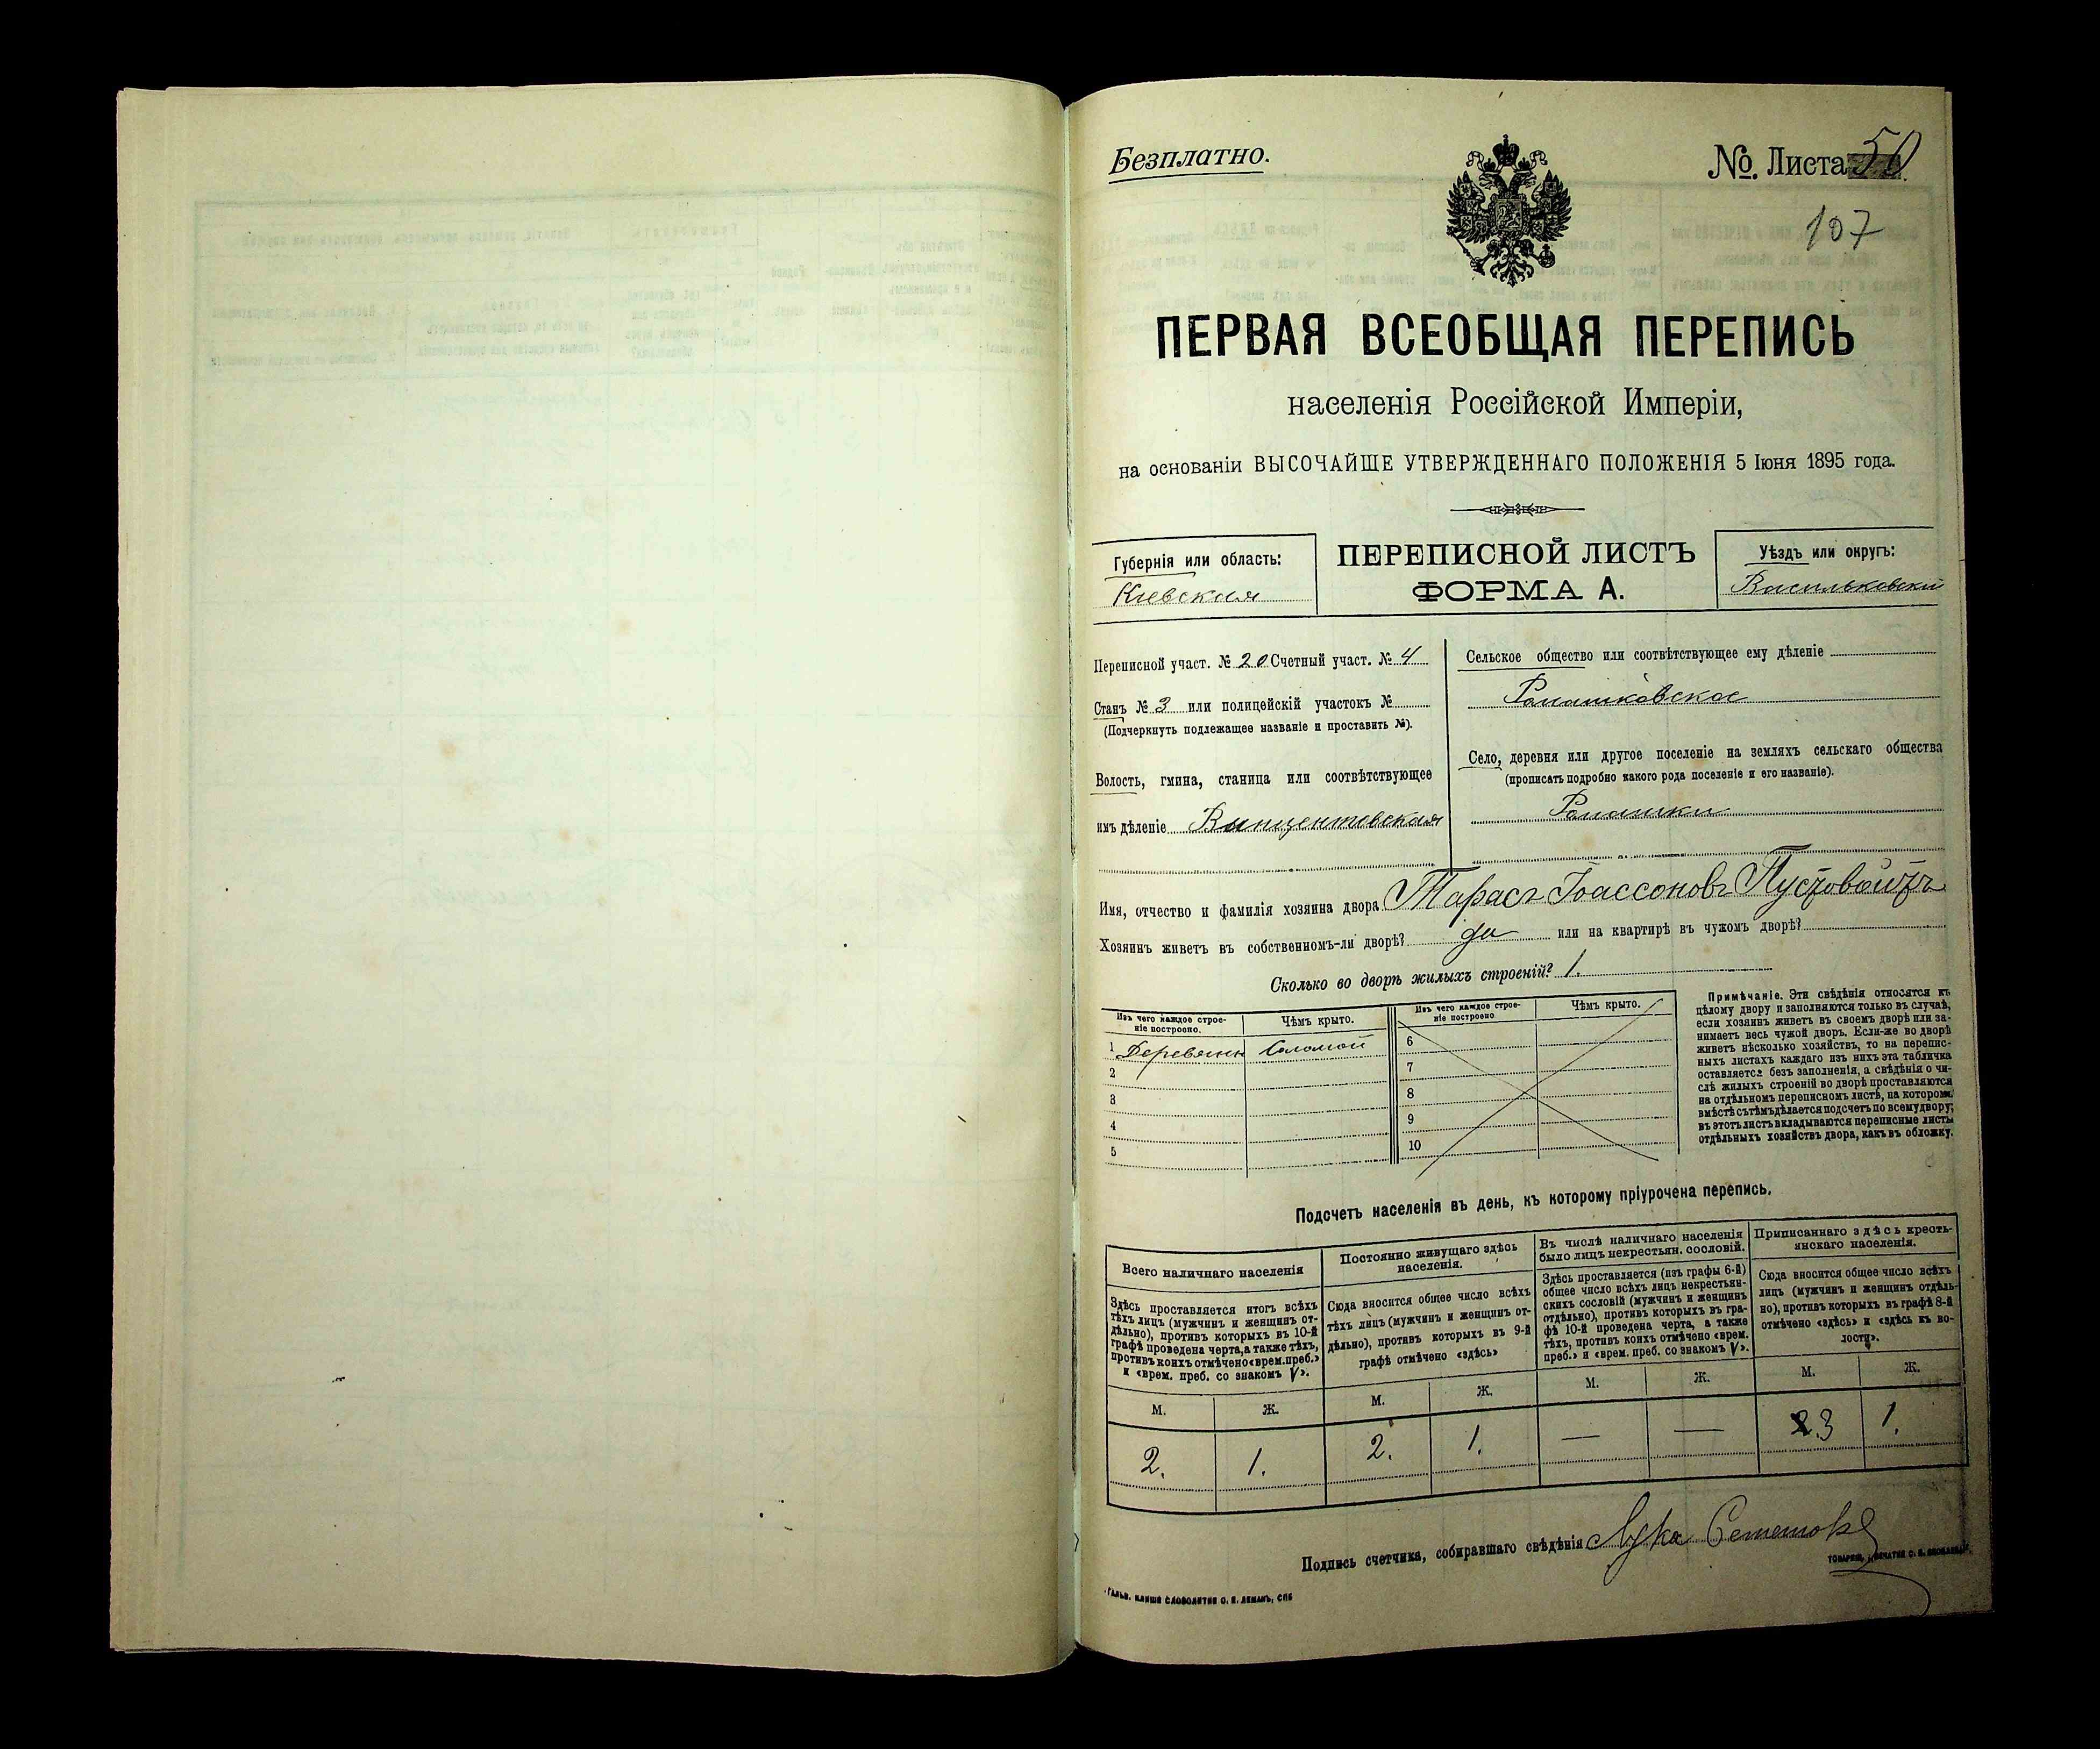 Безплатно.
№. Листа 50
107
ПЕРВАЯ ВСЕОБЩАЯ ПЕРЕПИСЬ
населенія Россійской Имперіи,
на основаніи ВЫСОЧАЙШЕ УТВЕРЖДЕННАГО ПОЛОЖЕНІЯ 5 Іюня 1895 года.
Губернія или область:
Кіевская
ПЕРЕПИСНОЙ ЛИСТЪ
ФОРМА А.
Уѣздъ или округъ:
Васильковскій
Переписной участ. № 20 Счетный участ. № 4
Станъ № 3 или полицейскій участокъ №
(Подчеркнуть подлежащее названіе и проставить №).
Волость, гмина, станица или соотвѣтствующее
имъ дѣленіе Винцентовская
Сельское общество или соотвѣтствующее ему дѣленіе
Ромашковское
Село, деревня или другое поселеніе на земляхъ сельскаго общества
(прописать подробно какого рода поселеніе и его названіе).
Ромашки
Имя, отчество и фамилія хозяина двора Тарасъ Іоассоновъ Пустовойтъ
Хозяинъ живетъ въ собственномъ-ли дворѣ? да или на квартирѣ въ чужомъ дворѣ?
Сколько во дворѣ жилыхъ строеній? 1.
Изъ чего каждое строе-
ніе построено.
Чѣмъ крыто.
1 Деревянн Соломой
2
3
4
5
Изъ чего каждое строе-
ніе построено
Чѣмъ крыто.
6
7
8
9
10
Примѣчаніе. Эти свѣдѣнія относятся къ
цѣлому двору и заполняются только въ случаѣ,
если хозяинъ живетъ въ своемъ дворѣ или за-
нимаетъ весь чужой дворъ. Если-же во дворѣ
живетъ нѣсколько хозяйствъ, то на перепис-
ныхъ листахъ каждаго изъ нихъ эта табличка
оставляется безъ заполненія, а свѣдѣнія о чи-
слѣ жилыхъ строеній во дворѣ проставляются
на отдѣльномъ переписномъ листѣ, на которомъ
вмѣстѣ съ тѣмъ дѣлается подсчетъ по всему двору;
въ этотъ листъ вкладываются переписные листы
отдѣльныхъ хозяйствъ двора, какъ въ обложку.
Подсчетъ населенія въ день, къ которому пріурочена перепись.
Всего наличнаго населенія
Здѣсь проставляется итогъ всѣхъ
тѣхъ лицъ (мужчинъ и женщинъ от-
дѣльно), противъ которыхъ въ 10-й
графѣ проведена черта, а также тѣхъ,
противъ коихъ отмѣчено «врем. преб.»
и «врем. преб. со знакомъ V».
М. Ж.
2. 1.
Постоянно живущаго здѣсь
населенія.
Сюда вносится общее число всѣхъ
тѣхъ лицъ (мужчинъ и женщинъ от-
дѣльно), противъ которыхъ въ 9-й
графѣ отмѣчено «здѣсь»
М. Ж.
2. 1.
Въ числѣ наличнаго населенія
было лицъ некрестьян. сословій.
Здѣсь проставляется (изъ графы 6-й)
общее число всѣхъ лицъ некрестьян-
скихъ сословій (мужчинъ и женщинъ
отдѣльно), противъ которыхъ въ гра-
фѣ 10-й проведена черта, а также
тѣхъ, противъ коихъ отмѣчено «врем.
преб.» и «врем. преб. со знакомъ V».
М. Ж.
— —
Приписаннаго здѣсь кресть-
янскаго населенія.
Сюда вносится общее число всѣхъ
лицъ (мужчинъ и женщинъ отдѣль-
но), противъ которыхъ въ графѣ 8-й
отмѣчено «здѣсь» и «здѣсь къ во-
лости».
М. Ж.
3 1.
Подпись счетчика, собиравшаго свѣдѣнія Лука
ГАЛЬВ. КЛИШЕ СЛОВОЛИТНИ О. И. ЛЕМАНЪ, СПБ